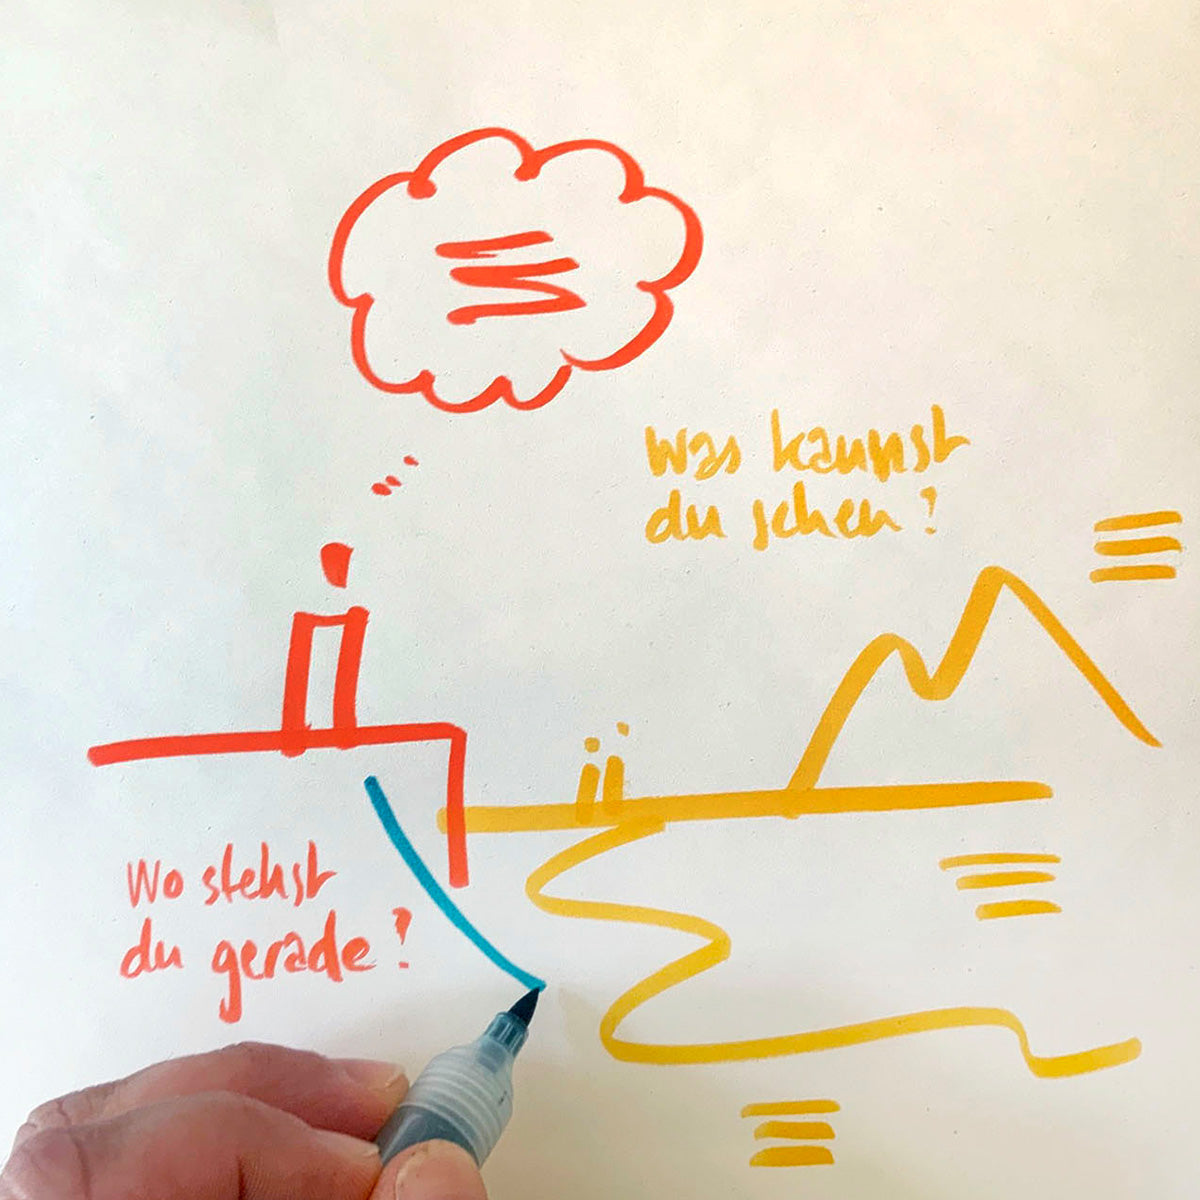 Was kannst
du sehen?
Wo stehst
du gerade?